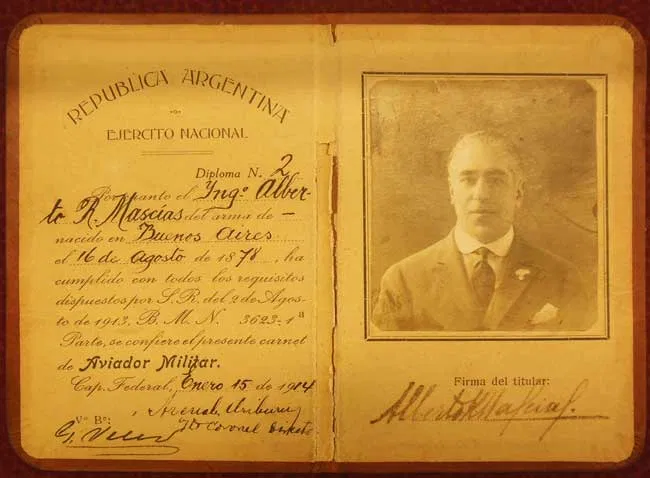 REPUBLICA ARGENTINA
EJERCITO NACIONAL
Diploma N. 2
Por cuanto el Yngº Alber-
to R. Mascías del arma de —
nacido en Buenos Aires
el 16 de Agosto de 1878, ha
cumplido con todos los requisitos
dispuestos por S. R. del 2 de Agos-
to de 1913, B. M. N. 3623-1ª
Parte, se confiere el presente carnet
de Aviador Militar.
Cap. Federal, Enero 15 de 1914
Uriburu
Vº Bº:
Tte Coronel
Firma del titular:
Alberto R Mascias